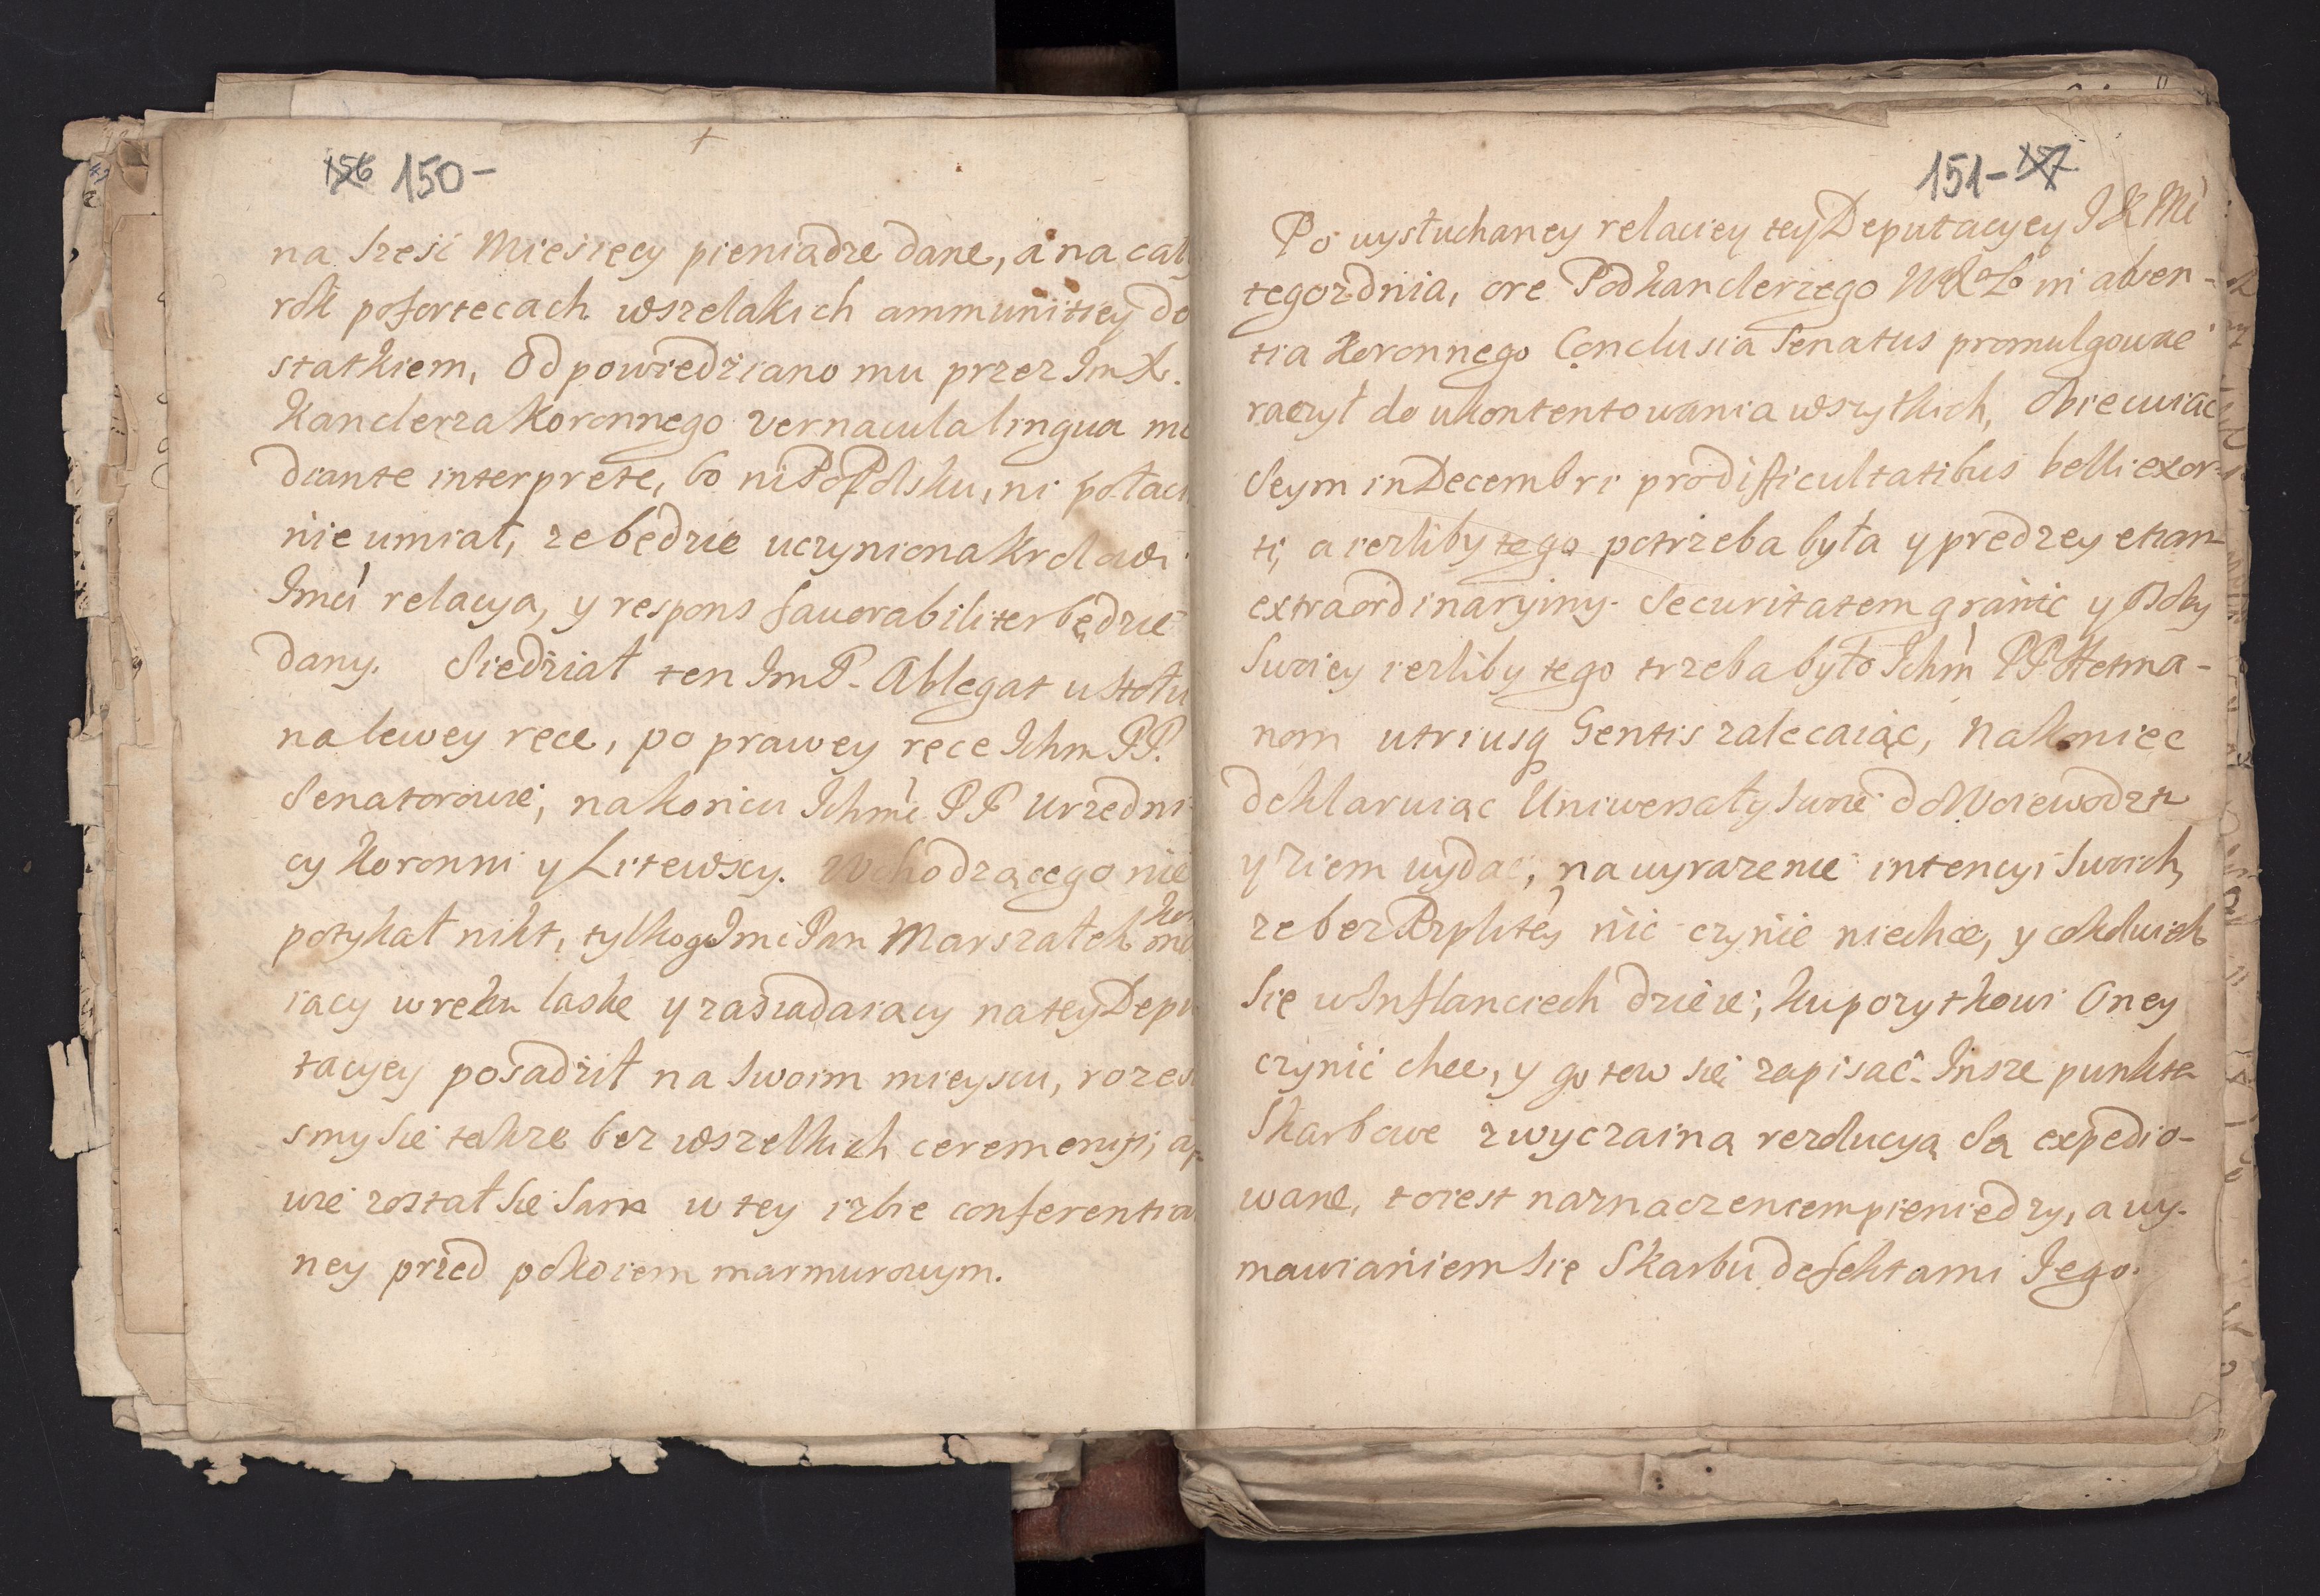 150-
na sześć Miesięcy pieniądze dane, a na cały
rok pofortecach wszelakich ammunitiey do
statkiem, Odpowiedziano mu przez ImX.
Kanclerza Koronnego vernacula lingua me
diante interprete, bo ni PoPolsku, ni połaci
nie umiał, że będzie uczyniona Krolowi
Imci relacya, y respons favorabiliter będzie
dany. Siedział ten ImP. Ablegat u stołu
na lewey ręce, po prawey ręce Ichm PP.
Senatorowie, nakońcu Ichmć PP Urzedni
cy Koronni y Litewscy. Wchodzącego nie
potykał nikt, tylko go Imć Pan Marszałek
iacy w ręku laskę y zasiadaiacy na tey Depu
tacyey posadził na swoim mieyscu, rozes
smy się także bez wszelkich ceremonij,
wie został się sam w tey izbie conferentia
ney przed pokoiem marmurowym.
151-
Po wysłuchaney relaciey tey Deputacyey JKMć
tegoż dnia, ore Podkanclerzego WXLo in absen-
tia Koronnego Conclusia Senatus promulgować
raczył do ukontentowania wszytkich, Obiecuiąc
Seym in Decembri pro difficultatibus belli exor-
ti, a ieżliby tego potrzeba była y prędzey etiam
extraordinaryiny. Securitatem granic y Osoby
Swoiey ieżliby tego trzeba było Ichm PP Hetma-
nom utriusq Gentis zalecaiąc, Nakoniec
deklaruiąc Uniwersały swoie do Woiewodztw
y Ziem wydać, na wyrażenie intencyi swoich,
że bez Rzpltey nic czynić niechce, y cokolwiek
Się w Inflanciech dzieie, ku pożytkowi Oney
czynić chce, y gotow się zapisać. Insze punkta
Skarbowe zwyczaina rezolucyą Są expedio-
wane, to iest naznaczeniem pieniedzy, a wy-
mawianiem się Skarbu defektami Jego.